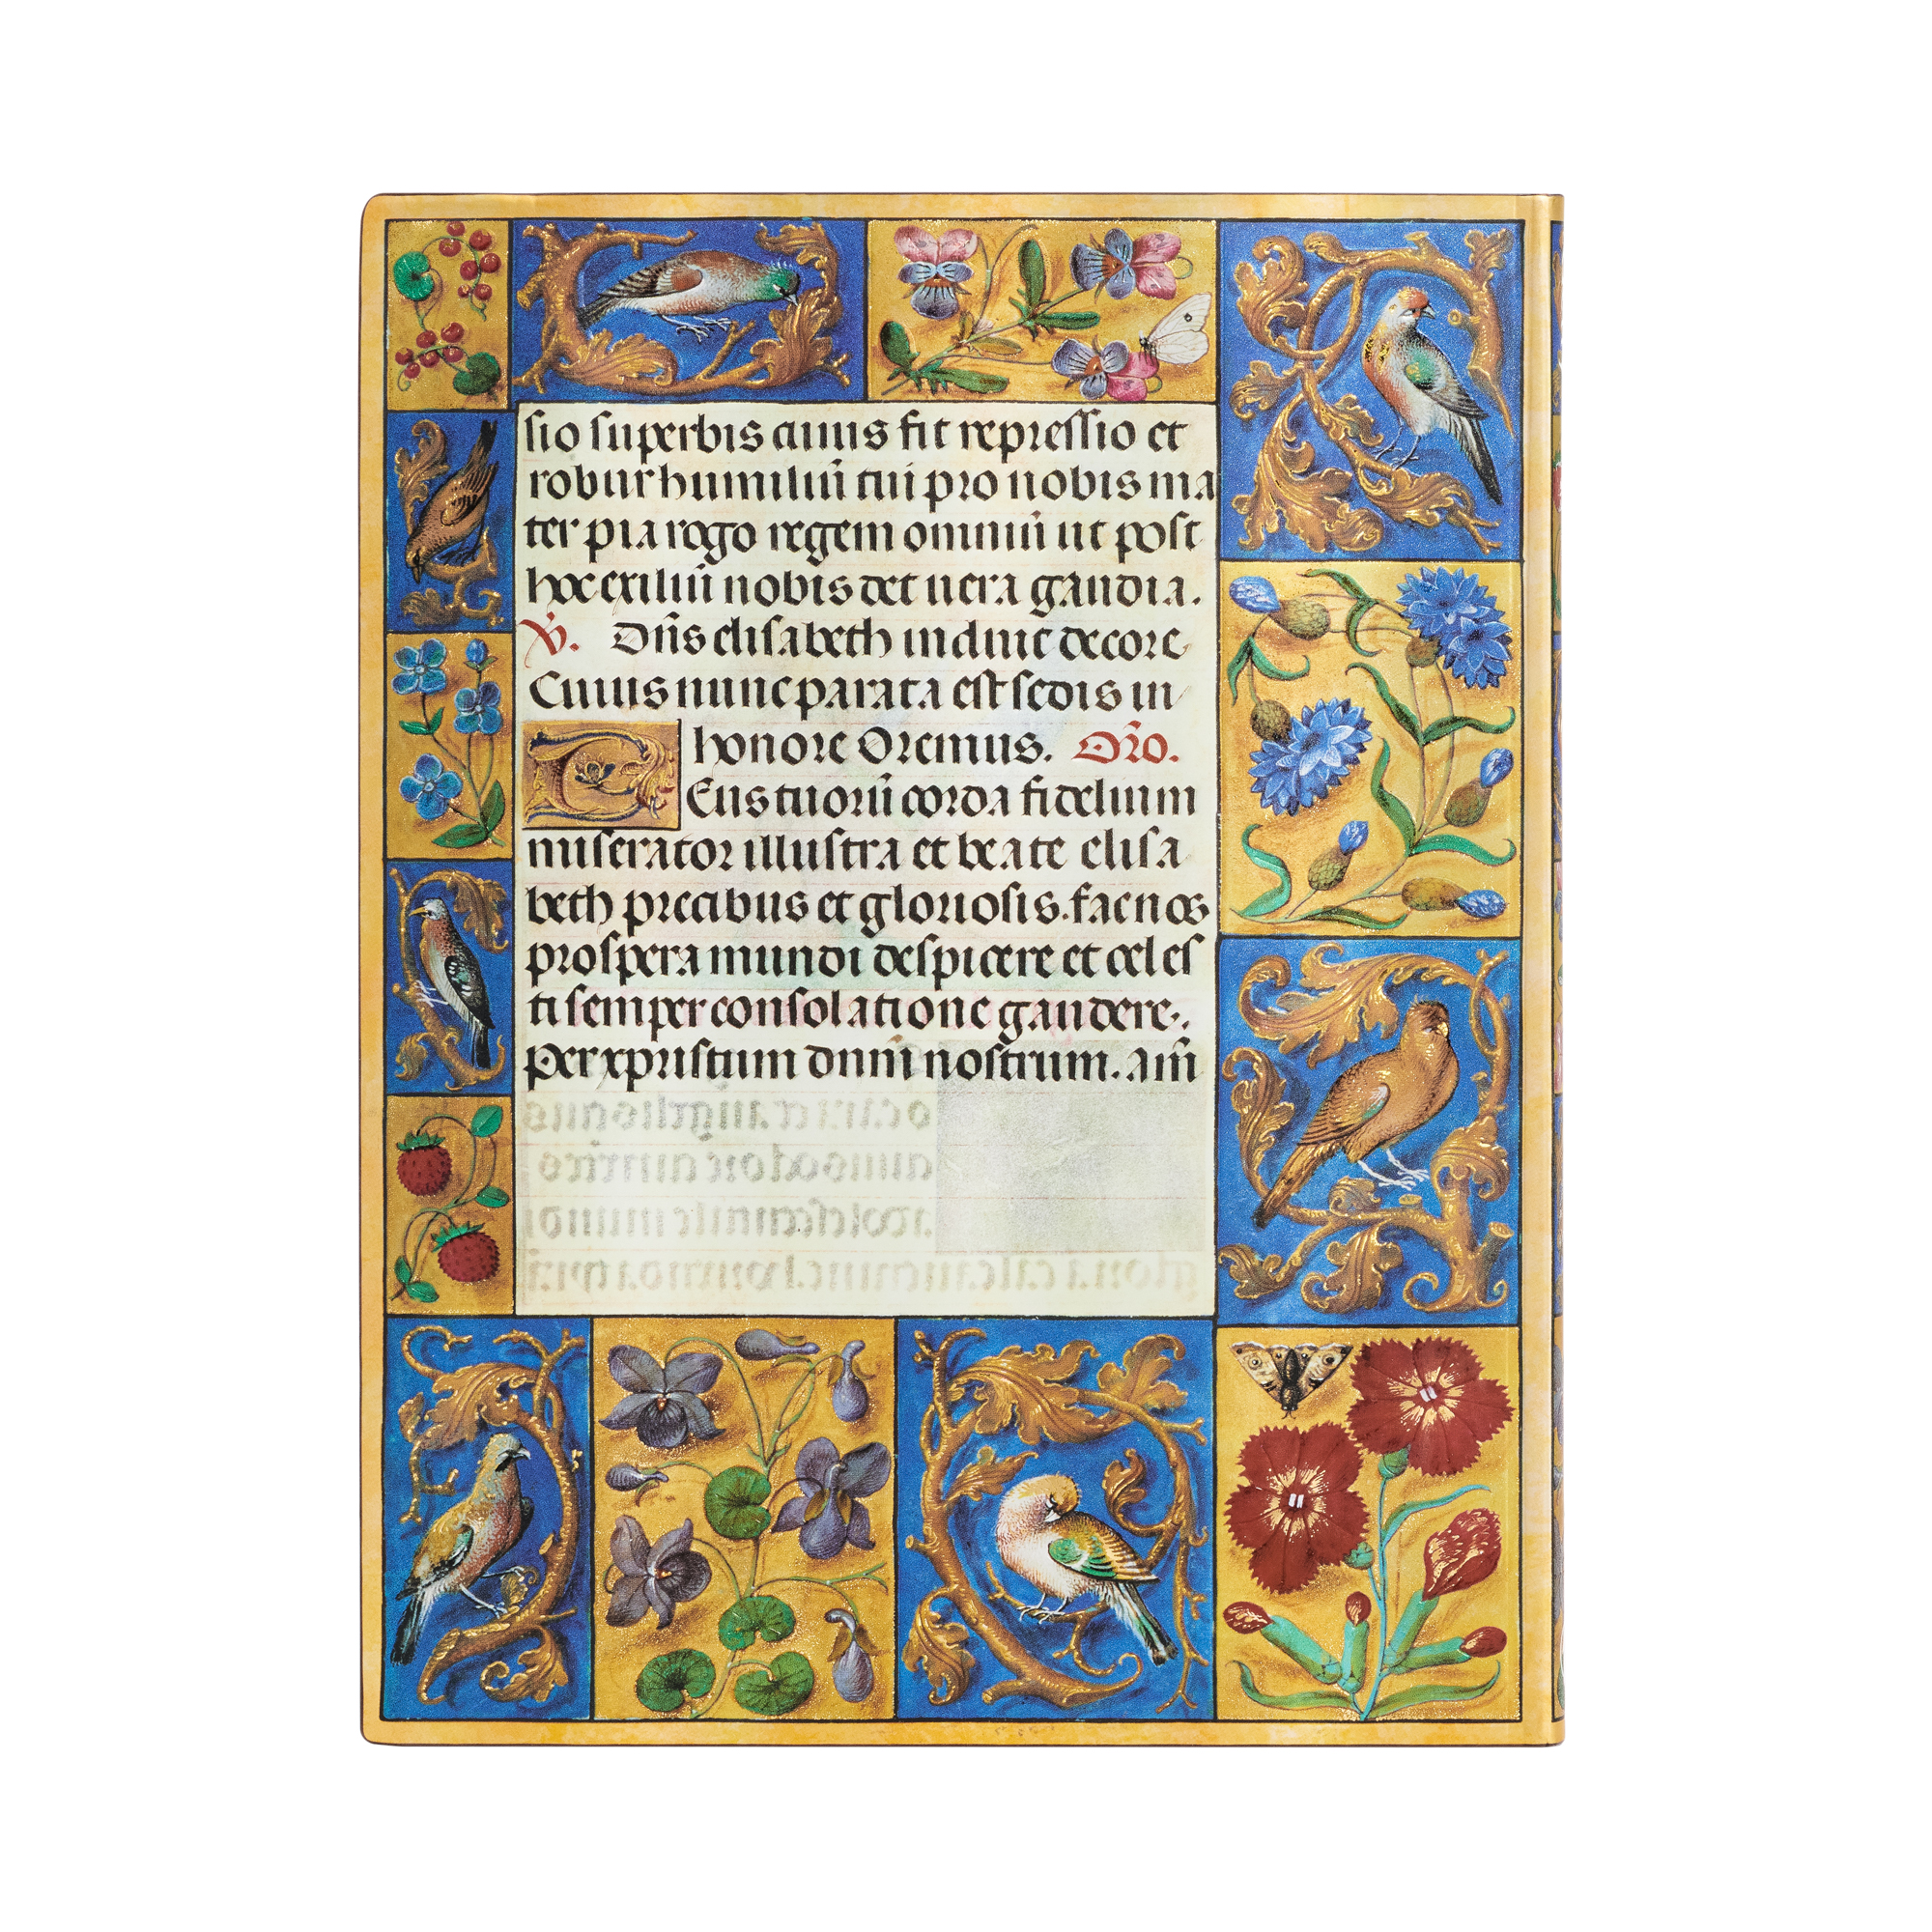 sio superbis cuius fit repressio et
robur humiliū tui pro nobis ma
ter pia rogo regem omniū ut post
hoc exiliū nobis det uera gaudia.
V. Dñs elisabeth induit decore
Cuius nunc parata est sedis in
honore Oremus. Orõ.
Deus tuorū corda fidelium
miserator illustra et beate elisa
beth precibus et gloriosis. fac nos
prospera mundi despicere et celes
ti semper consolatione gaudere.
Per xpristum dnm̄ nostrum. am̄